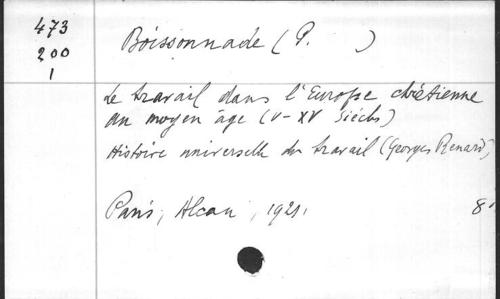 473
200
1
Boissonnade (P. )
Le travail dans l'Europe chrétienne
au moyen âge (V-XV siècles)
Histoire universelle du travail (Georges Renard)
Paris, Alcan, 1921,
8°